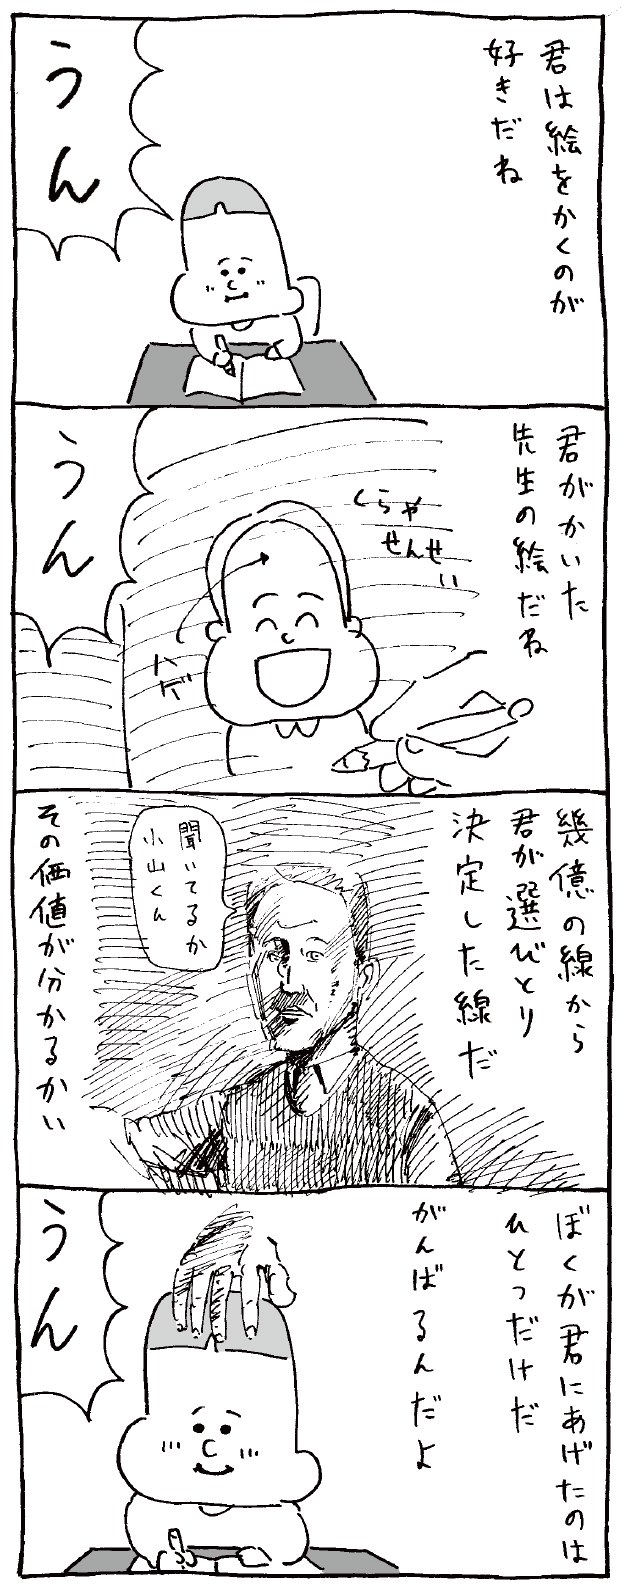 君は絵をかくのが
好きだね
うん
君がかいた
先生の絵だね
くらや
せんせい
ハゲ
うん
幾億の線から
君が選びとり
決定した線だ
聞いてるか
小山くん
その価値が分かるかい
ぼくが君にあげたのは
ひとつだけだ
がんばるんだよ
うん